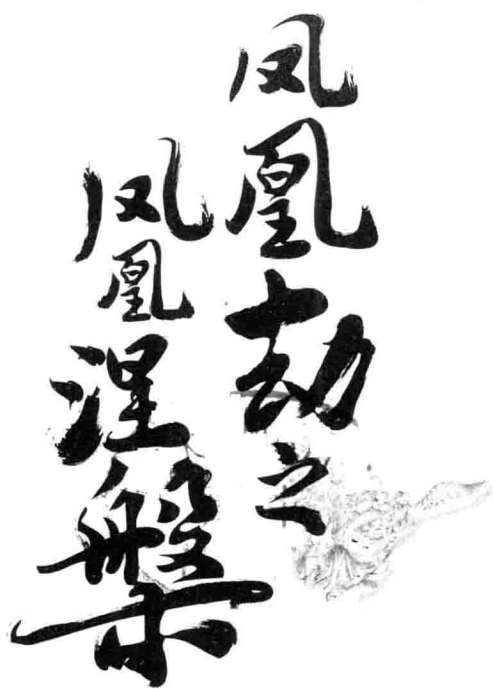 凤凰劫之
凤凰涅槃